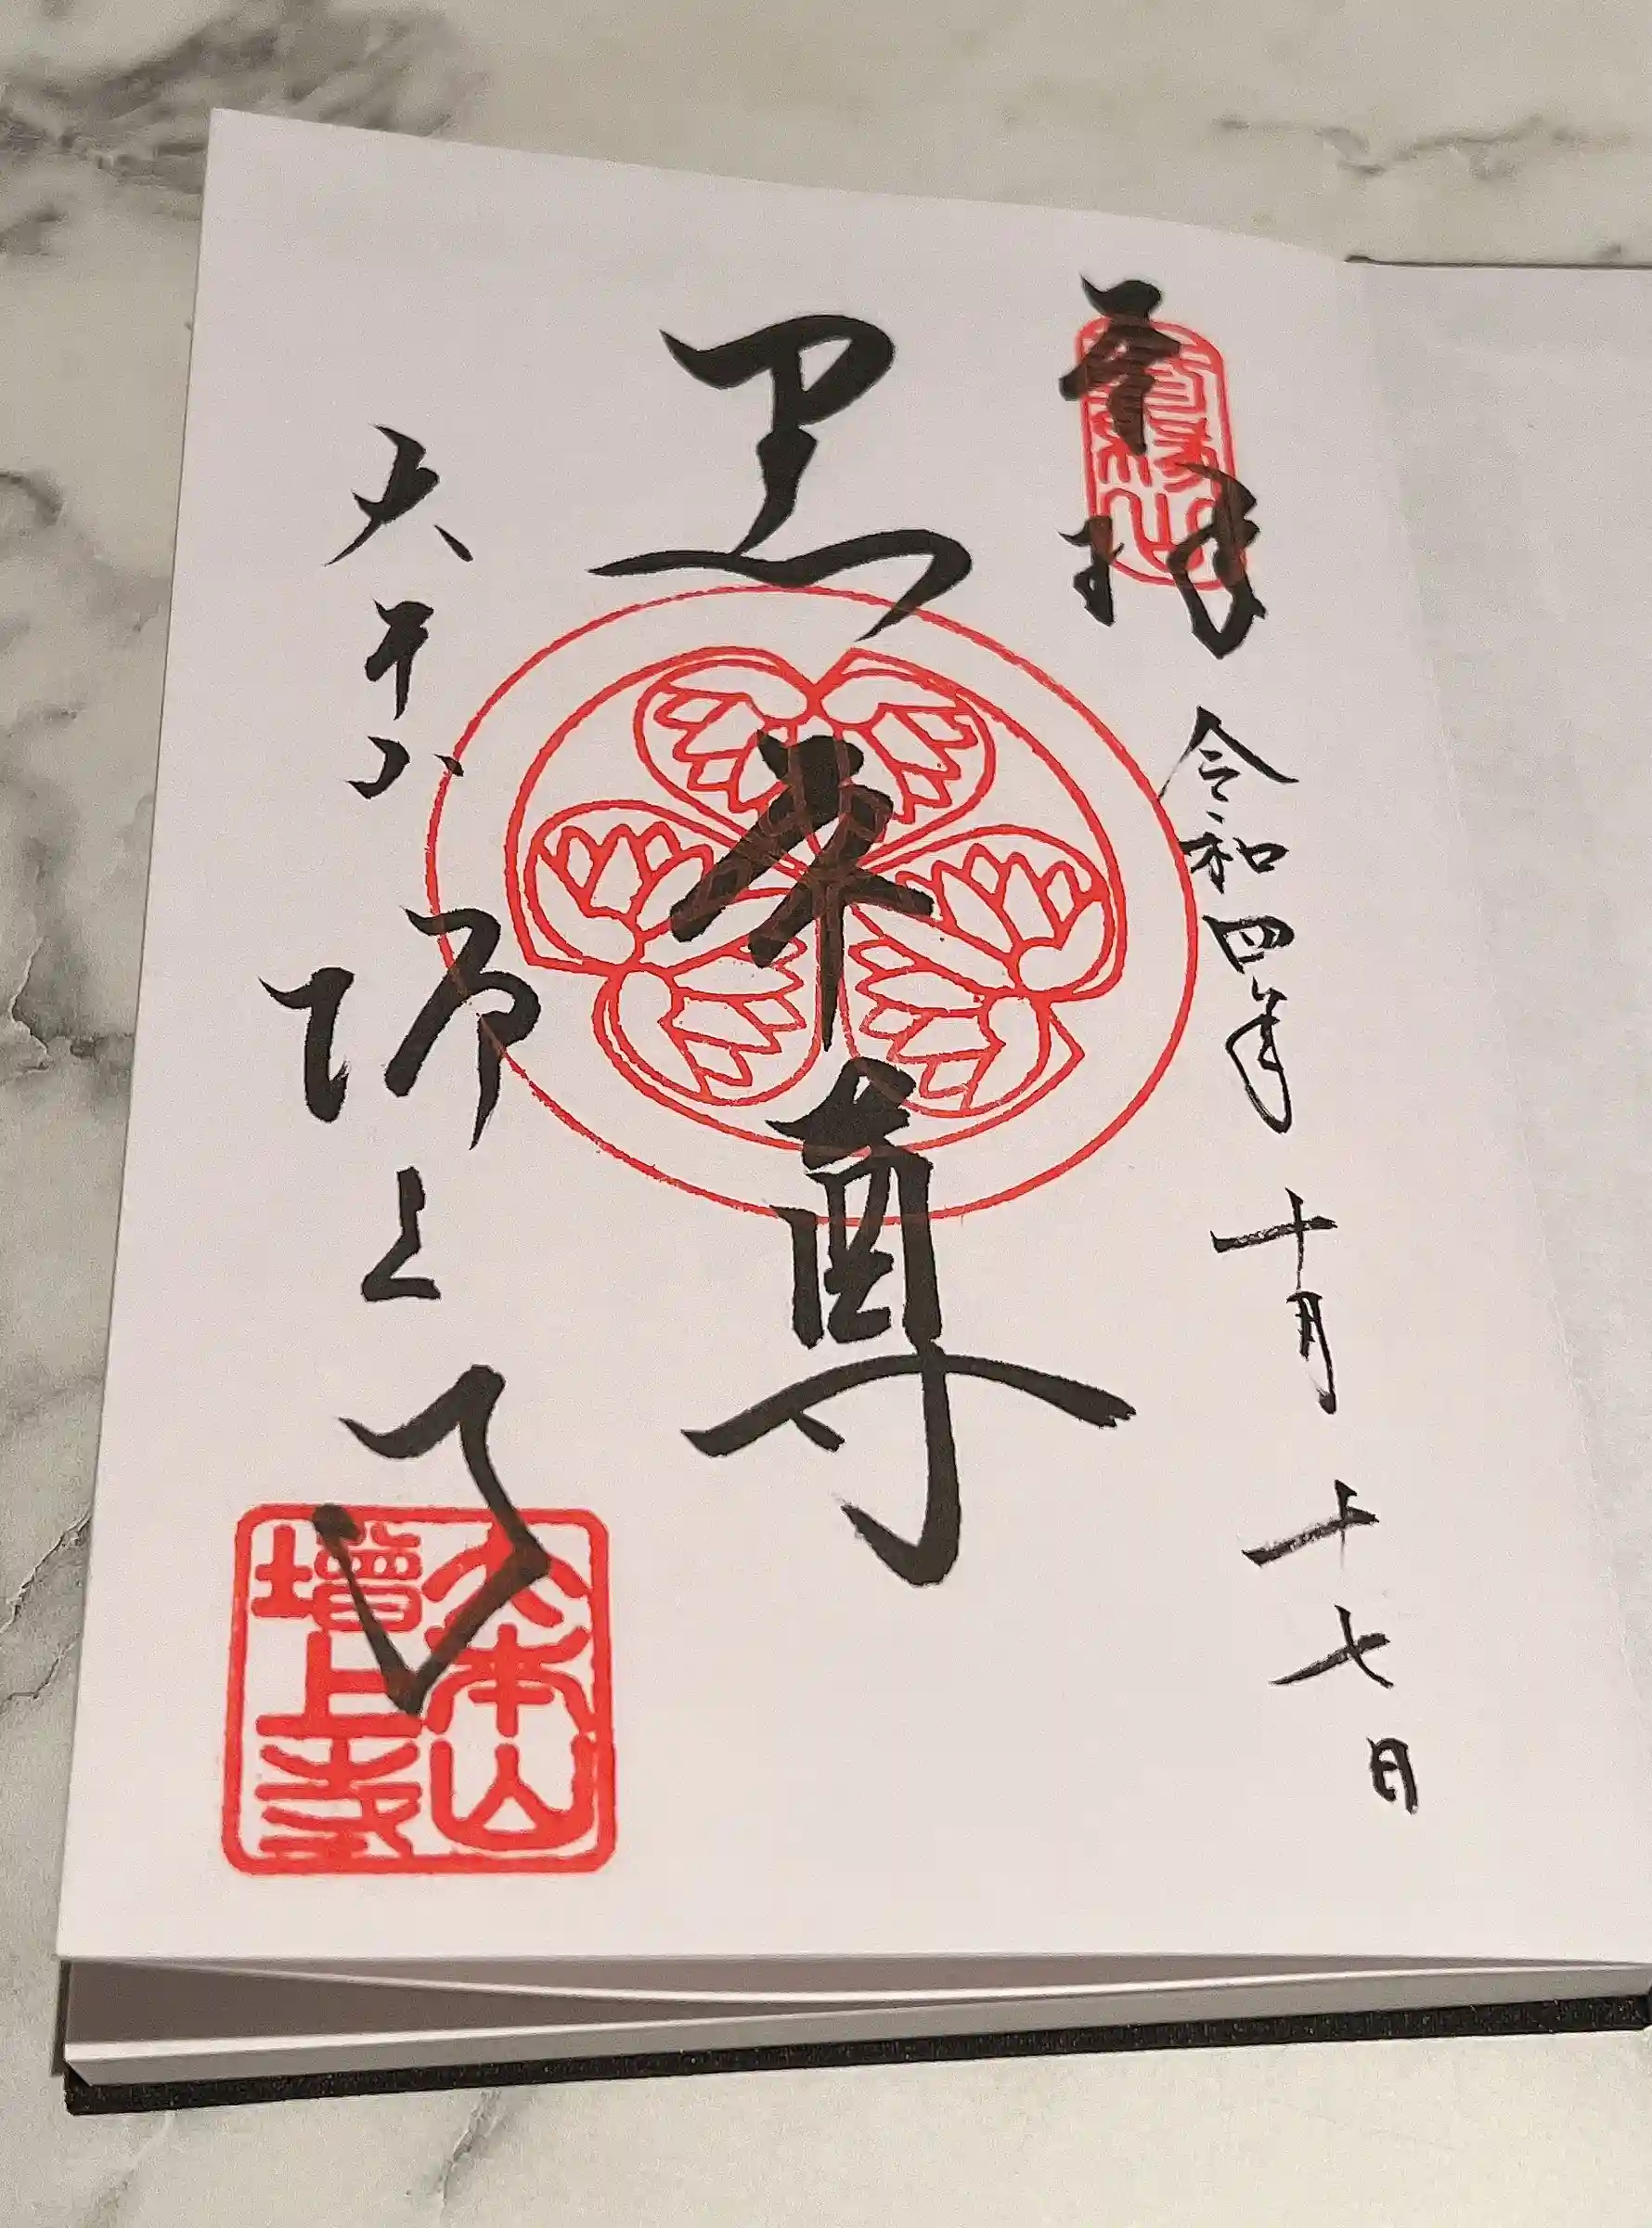 奉拝
令和四年十月十七日
黒本尊
大本山
増上寺
大本山
増上寺